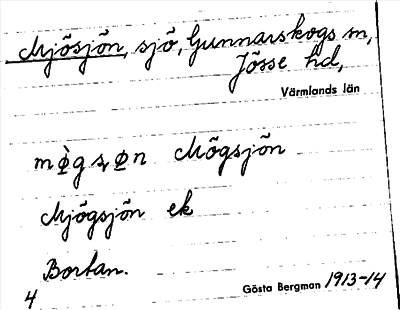 Mjösjön, sjö, Gunnarskogs sn,
Jösse hd,
Värmlands län
Mögsjön
Mjögsjön ek
Bortan.
4
Gösta Bergman 1913-14